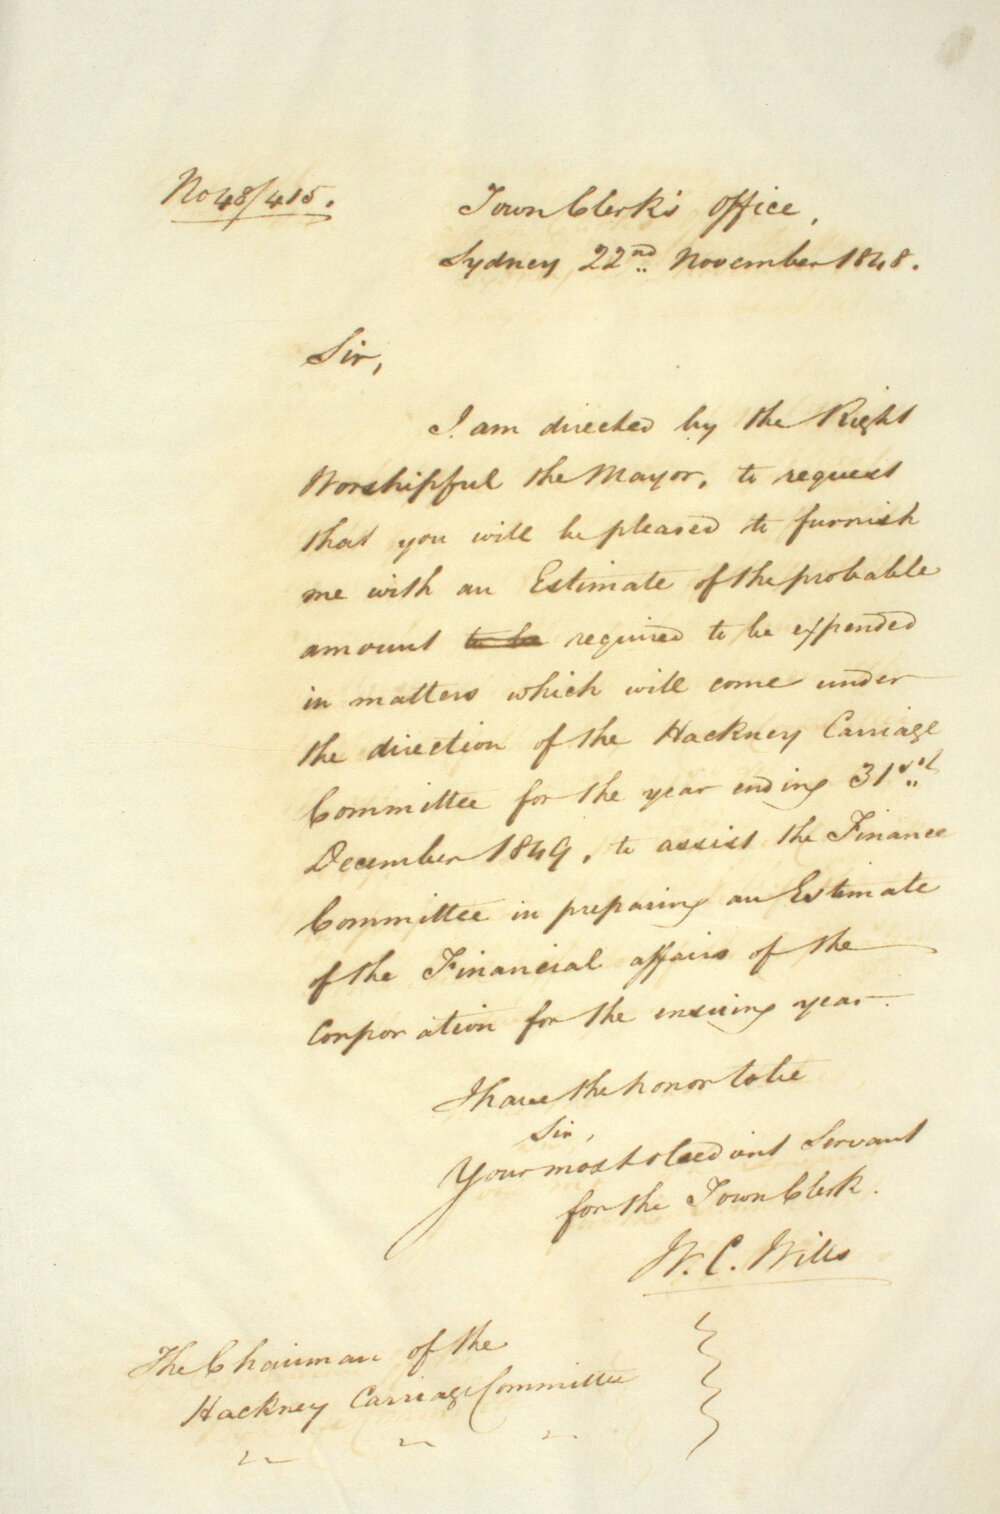 No 48/415.
Town Clerk's Office,
Sydney 22nd November 1848.
Sir,
I am directed by the Right
Worshipful the Mayor, to request
that you will be pleased to furnish
me with an Estimate of the probable
amount to be required to be expended
in matters which will come under
the direction of the Hackney Carriage
Committee for the year ending 31st
December 1849, to assist the Finance
Committee in preparing an Estimate
of the Financial affairs of the
Corporation for the ensuing year.
I have the honor to be
Sir,
Your most obedient Servant
for the Town Clerk.
W. C. Wills
The Chairman of the
Hackney Carriage Committee